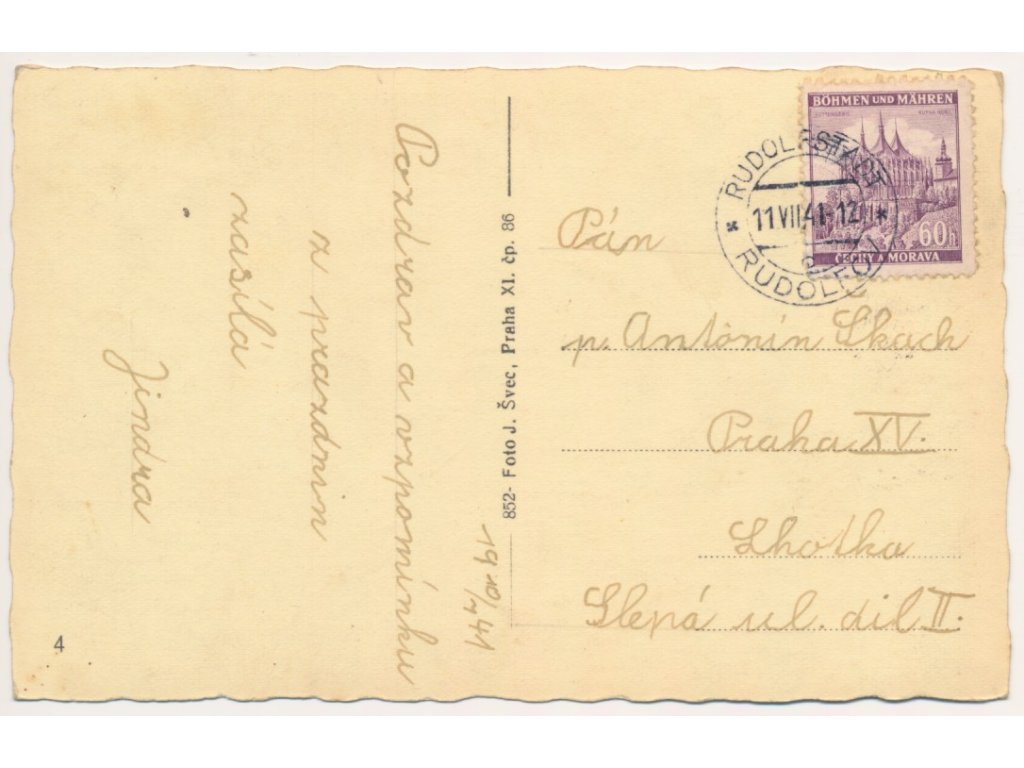 Pozdrav a vzpomínku
z prazdnin
zasílá
Jindra
19 10/7 41
4
852- Foto J. Švec, Praha XI. čp. 86
BÖHMEN UND MÄHREN
60h
ČECHY A MORAVA
RUDOLFSTADT
11 VII 41-12
RUDOLFOV
Pán
p. Antonín Skach
Praha XV.
Lhotka
Slepá ul. dil II.